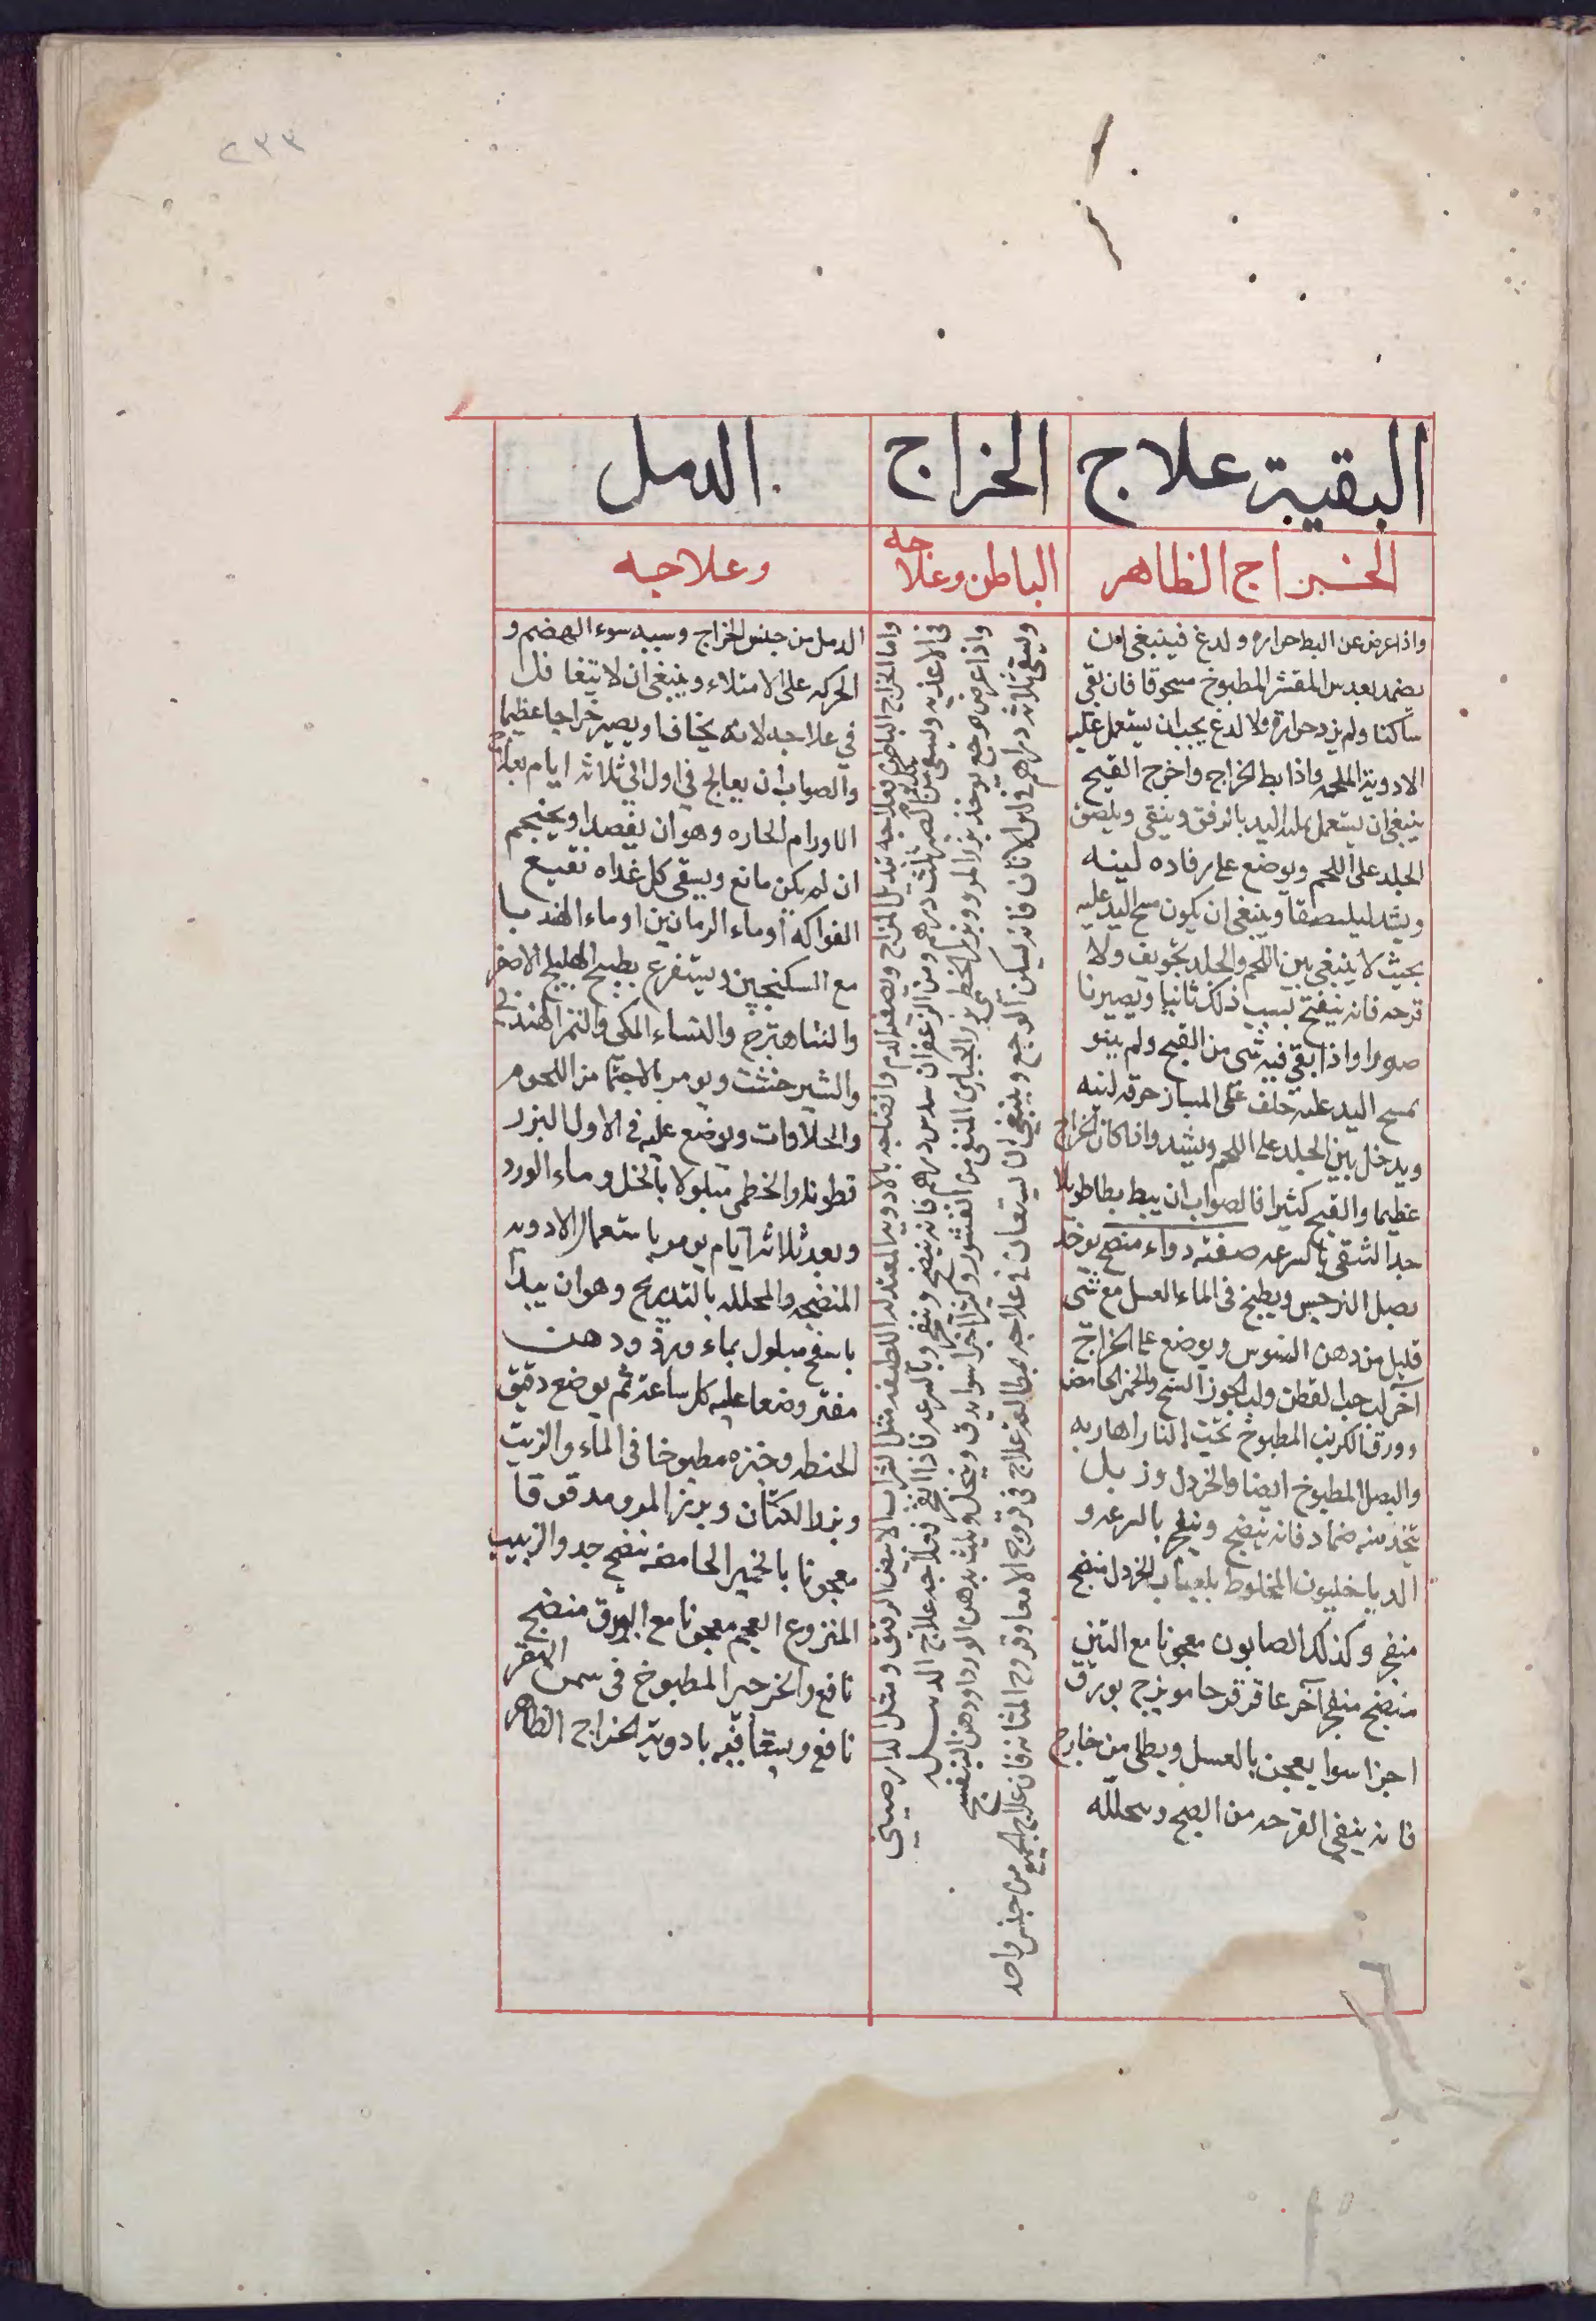 ٢٣٣
البقية علاج
الخراج الظاهر
واذا عرض عن البط حراره ولدغ فينبغي ان
يضمد بعدس المقشر المطبوخ مسحوقا فان بقي
ساكنا ولم يزد حرارة ولا لدع يجب ان يستعمل عليه
الادوية الملحمه واذا بط الخراج واخرج القيح
ينبغي ان يستعمل عليه اليد بالرفق وينقي ويلصق
الجلد على اللحم ويوضع على رفاده لينه
ويشد ليلتصقا وينبغي ان يكون مسح اليد عليه
بحيث لا ينبغي بين اللحم والجلد تجويف ولا
قرحه فانه ينفتح بسبب ذلك ثانيا ويصير نا
صورا واذا بقي فيه شى من القيح ولم ينو
بمسح اليد عليه خلف على المبار خرقه لينه
ويدخل بين الجلد على اللحم ويشد واذا كان الخراج
عظيما والقيح كثيرا فالصواب ان يبط بطا طويلا
جدا لتنقي بالسرعه صفته دواء منضج يوخذ
بصل النرجس ويطبخ في الماء العسل مع شى
قليل من دهن السوس ويوضع على الخراج
آخر لب حب القطن ولب الجوز السنخ والخمير الحامض
وورق الكرنب المطبوخ تحت النار اهاريه
والبصل المطبوخ ايضا والخردل وزبل
يتخذ منه ضماد فانه ينضج وينفجر بالسرعه و
الدياخليون المخلوط بلعاب الخردل منضج
منفجر وكذلك الصابون معجونا مع التين
منضج منفجر آخر عاقرقرحا مويزج بورق
اجزا سوا يعجن بالعسل ويطلى من خارج
فانه ينقي القرحه من القيح ويحلله
الخراج
الباطن وعلاجه
واما الخراج الباطن فعلاجه تبديل المزاج وتصفيه الدم وانضاجه بالادويه المعتدله اللطيفه مثل الشراب الابيض الرقيق ومثل الدارصيني
في الاغذيه ويسقى كل يوم من الصبر ثلث درهم ومن الزعفران سدس درهم فانه ينضج وينفجر بالسرعه فاذا انفجر فعلاجه علاج الدبيله
واذا عرض وجع يوخذ بزر المرو وبزر الخطمى وبزر الخبازى المنقى من القشور وكثيرا اجزا سوا يدق وينخل ويلت بدهن الورد او دهن البنفسج
ويسقى ثلاثه دراهم في لبن الاتان فانه يسكن الوجع وينبغي ان يستعان في علاجه بمطالعة علاج في قروح الامعا وقروح المثانه فان علاج الجميع من جنس واحد
الدمل
وعلاجه
الدمل من جنس الخراج وسببه سوء الهضم و
الحركه على الامتلاء وينبغي ان لا يتغافل
في علاجه لانه يخاف ان يصير خراجا عظيما
والصواب ان يعالج في اول الى ثلاثة ايام بعلاج
الاورام الحاره وهو ان يفصد او يحتجم
ان لم يكن مانع ويسقى كل غداه نقيع
الفواكه او ماء الرمانين او ماء الهندبا
مع السكنجبين ويستفرغ بطبيخ الهليلج الاصفر
والشاهترج والسناء المكي والتمر الهندي
والشيرخشت ويومر بالاجتناب من اللحوم
والحلاوات ويوضع عليه في الاول البزر
قطونا والخطمى مبلولا بالخل وماء الورد
وبعد ثلاثة ايام يومر باستعمال الادويه
المنضجه والمحلله بالتدريج وهو ان يبدأ
باسفنج مبلول بماء ورد ودهن
مفتر وضعا عليه كل ساعة ثم يوضع دقيق
الحنطه وخبزه مطبوخا في الماء والزيت
وبزر الكتان وبزر المرو مدقوقا
معجونا بالخمير الحامض ينضج جدا والزبيب
المنزوع العجم معجونا مع البورق منضج
نافع والخرجير المطبوخ في سمن البقر
نافع ويتعاقبه بادوية الخراج الظاهر